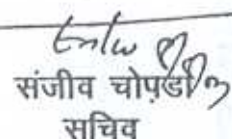 संजीव चोपडा
सचिव